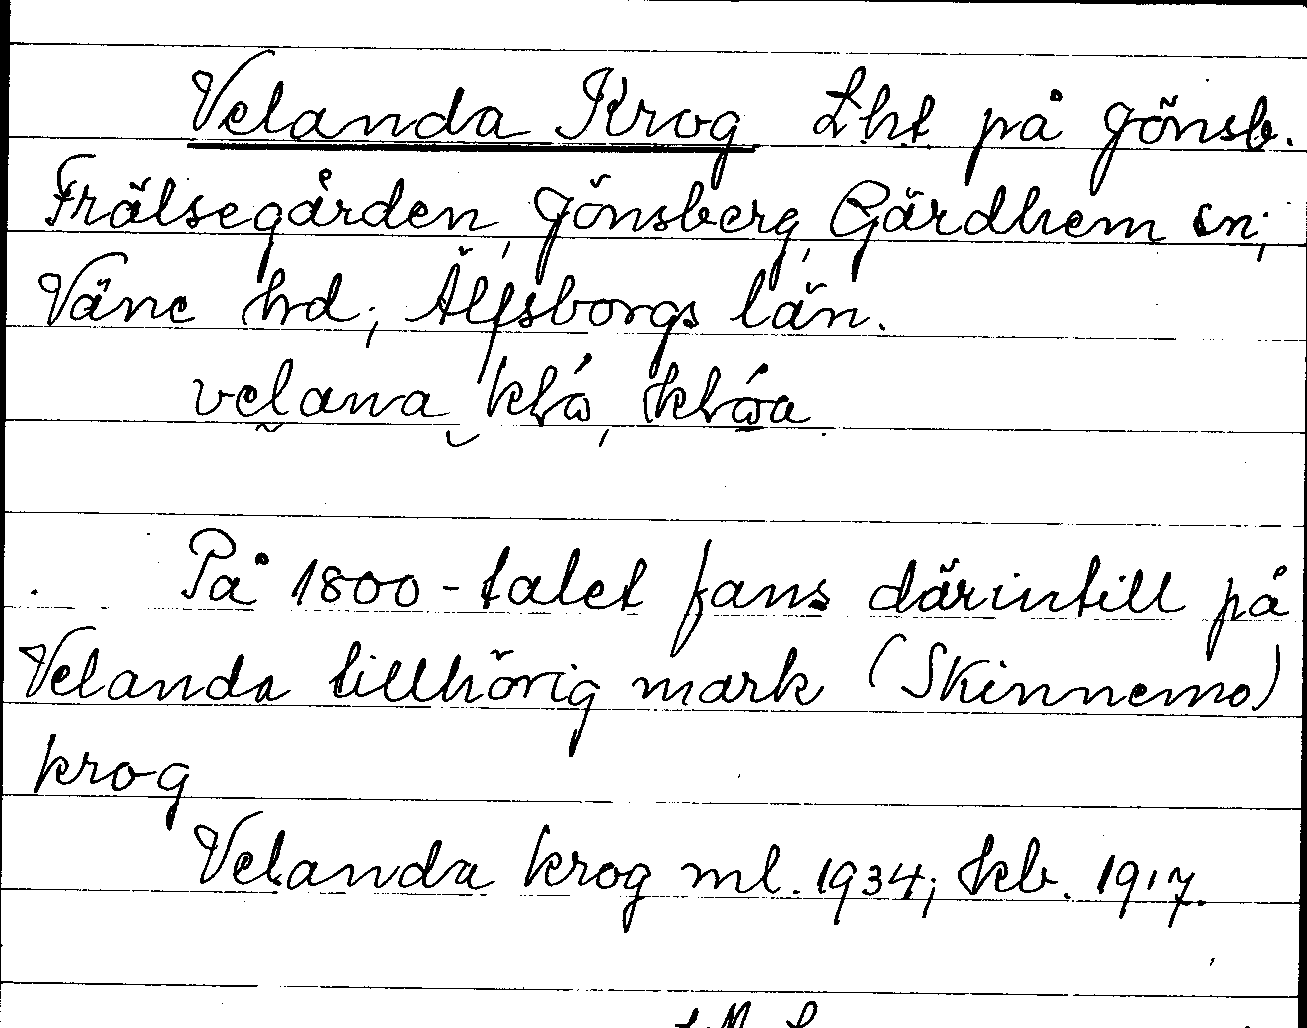 Velanda Krog Lht på Gönsb.
Frälsegården, Gönsberg, Gärdhem sn;
Väne hd; Älfsborgs län.
velana
På 1800-talet fans därintill på
Velanda tillhörig mark (Skinnemo)
krog
Velanda krog ml. 1934; kb. 1917.